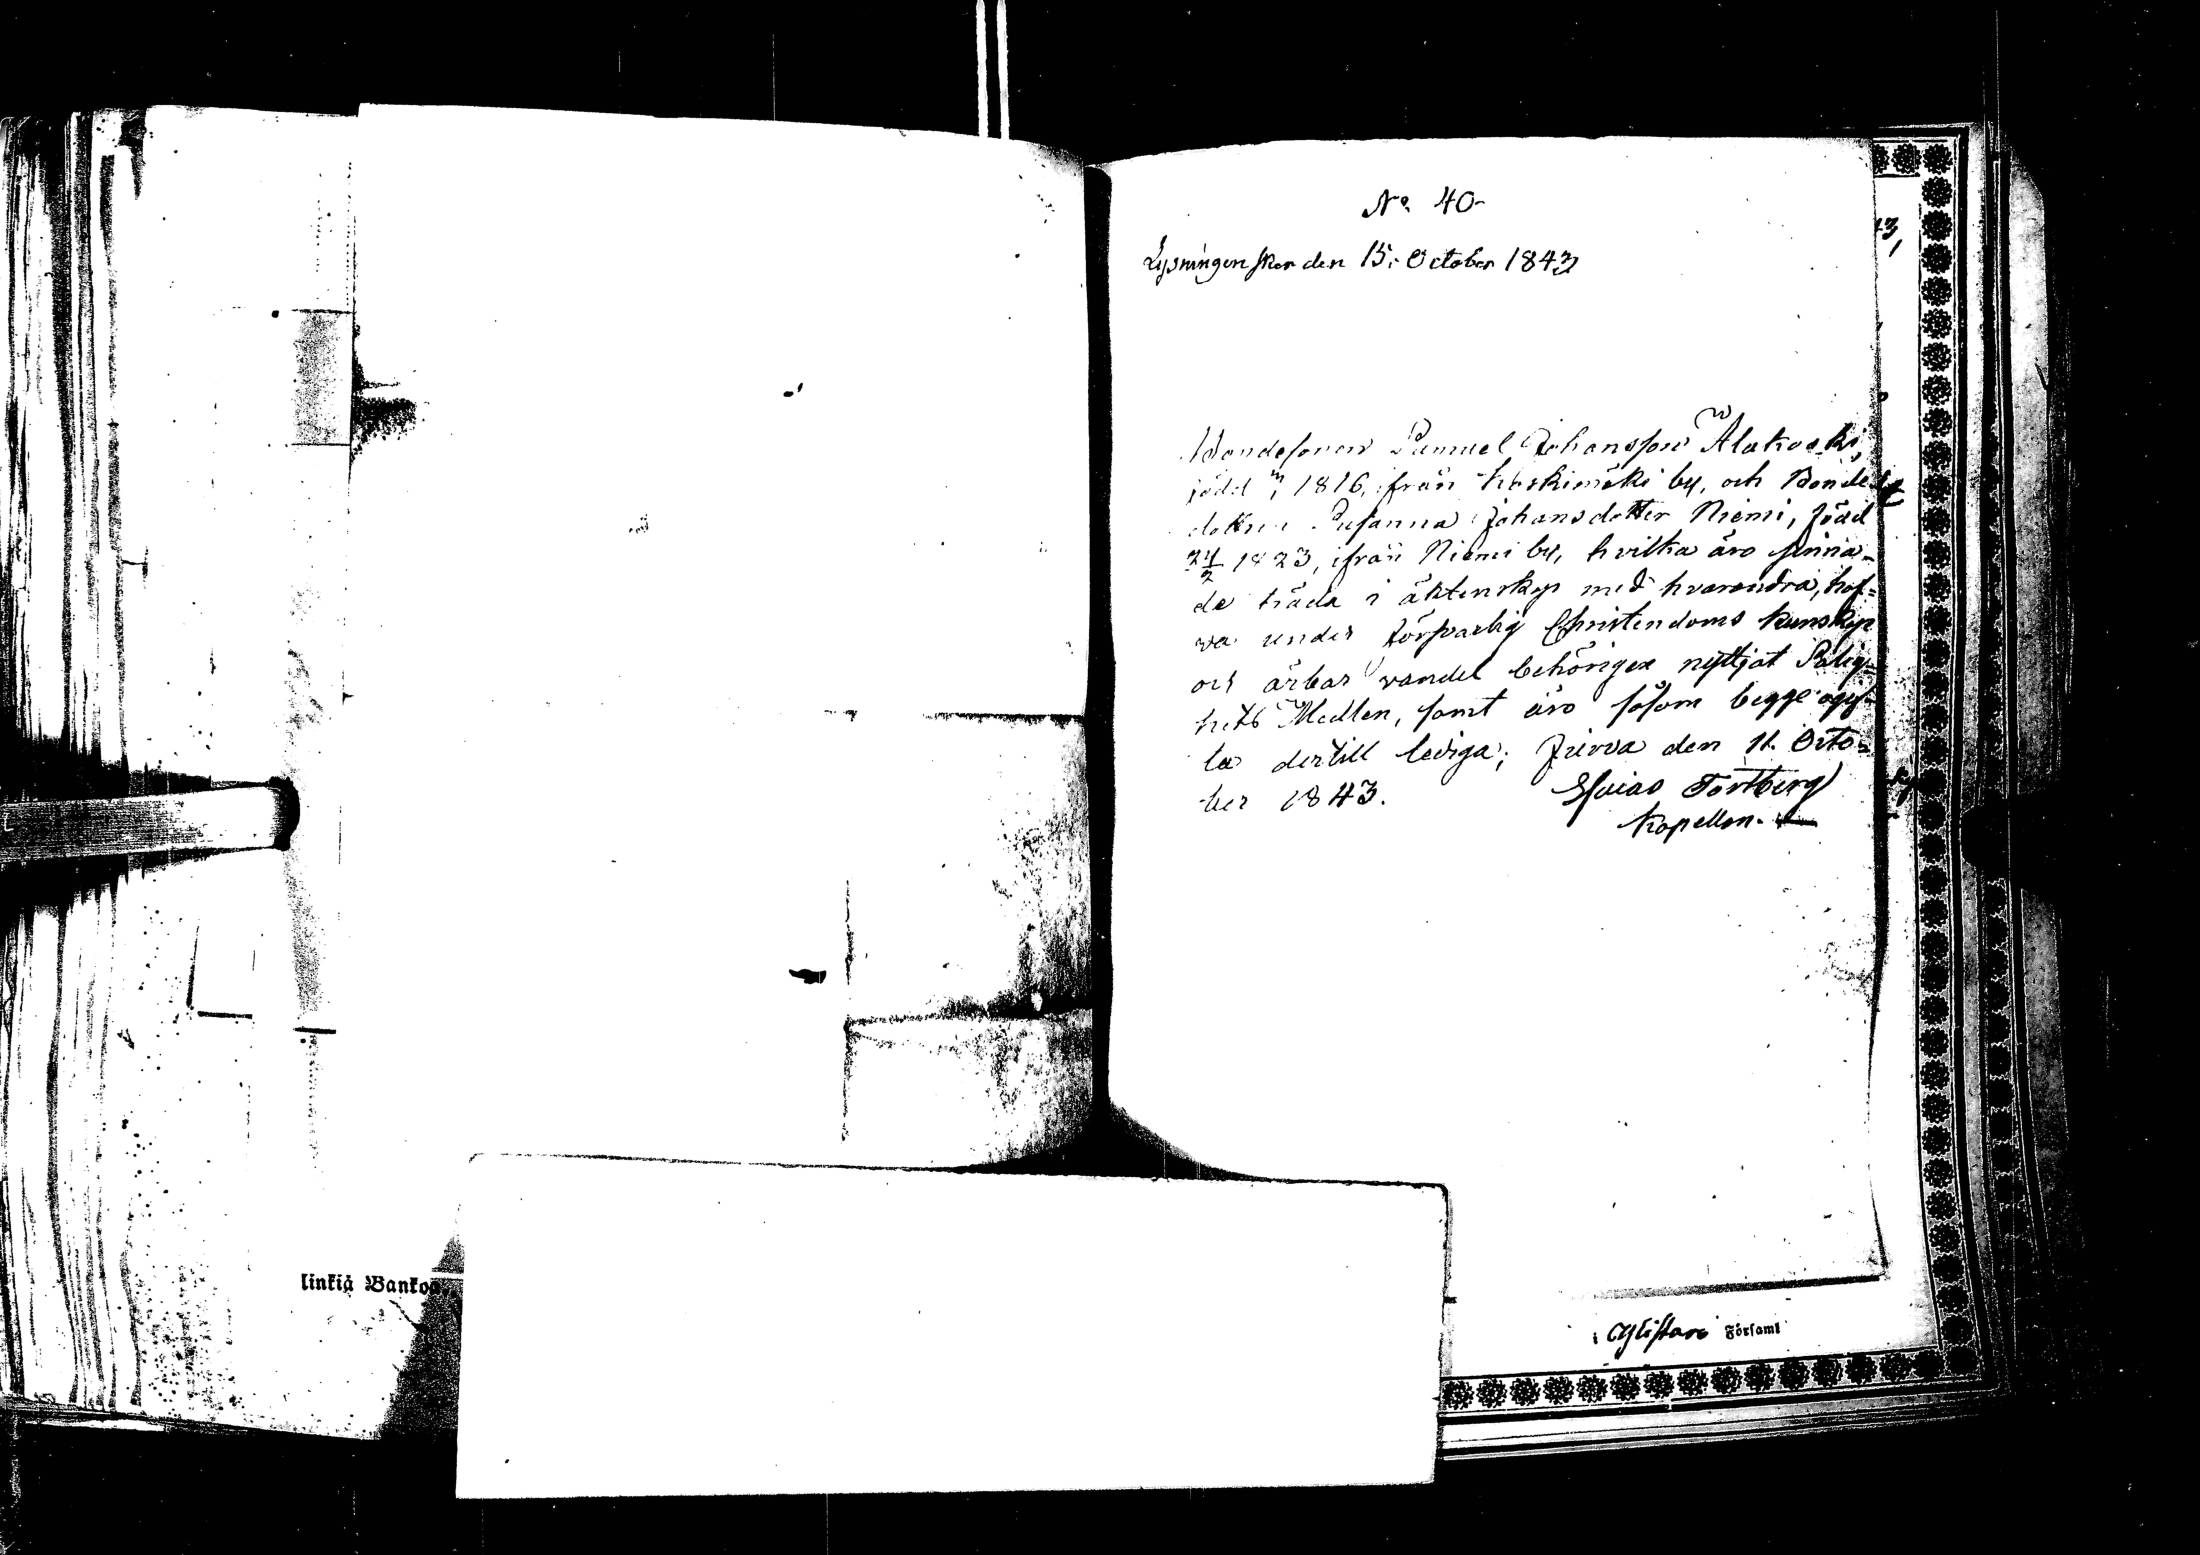 No. 40.
Lysningen sker den 15. October 1843
Bondesonen Samuel Johansson Alakoski,
född 1816, ifrån Koskimäki by, och Bonde
dottren Susanna Johansdotter Niemi, född
24/2 1823, ifrån Niemi by, hvilka äro sinna-
de träda i äktenskap med hvarandra, haf-
va under försvarlig Christendoms kunskap
och ärbar vandel behörigen nyttjat Salig-
hets Medlen, samt äro såsom begge ogif-
ta dertill lediga; Jurva den 11. Octo-
ber 1843. Esaias Forsberg
Kapellan.
linkiä Bankos
i Ylistaro Församl